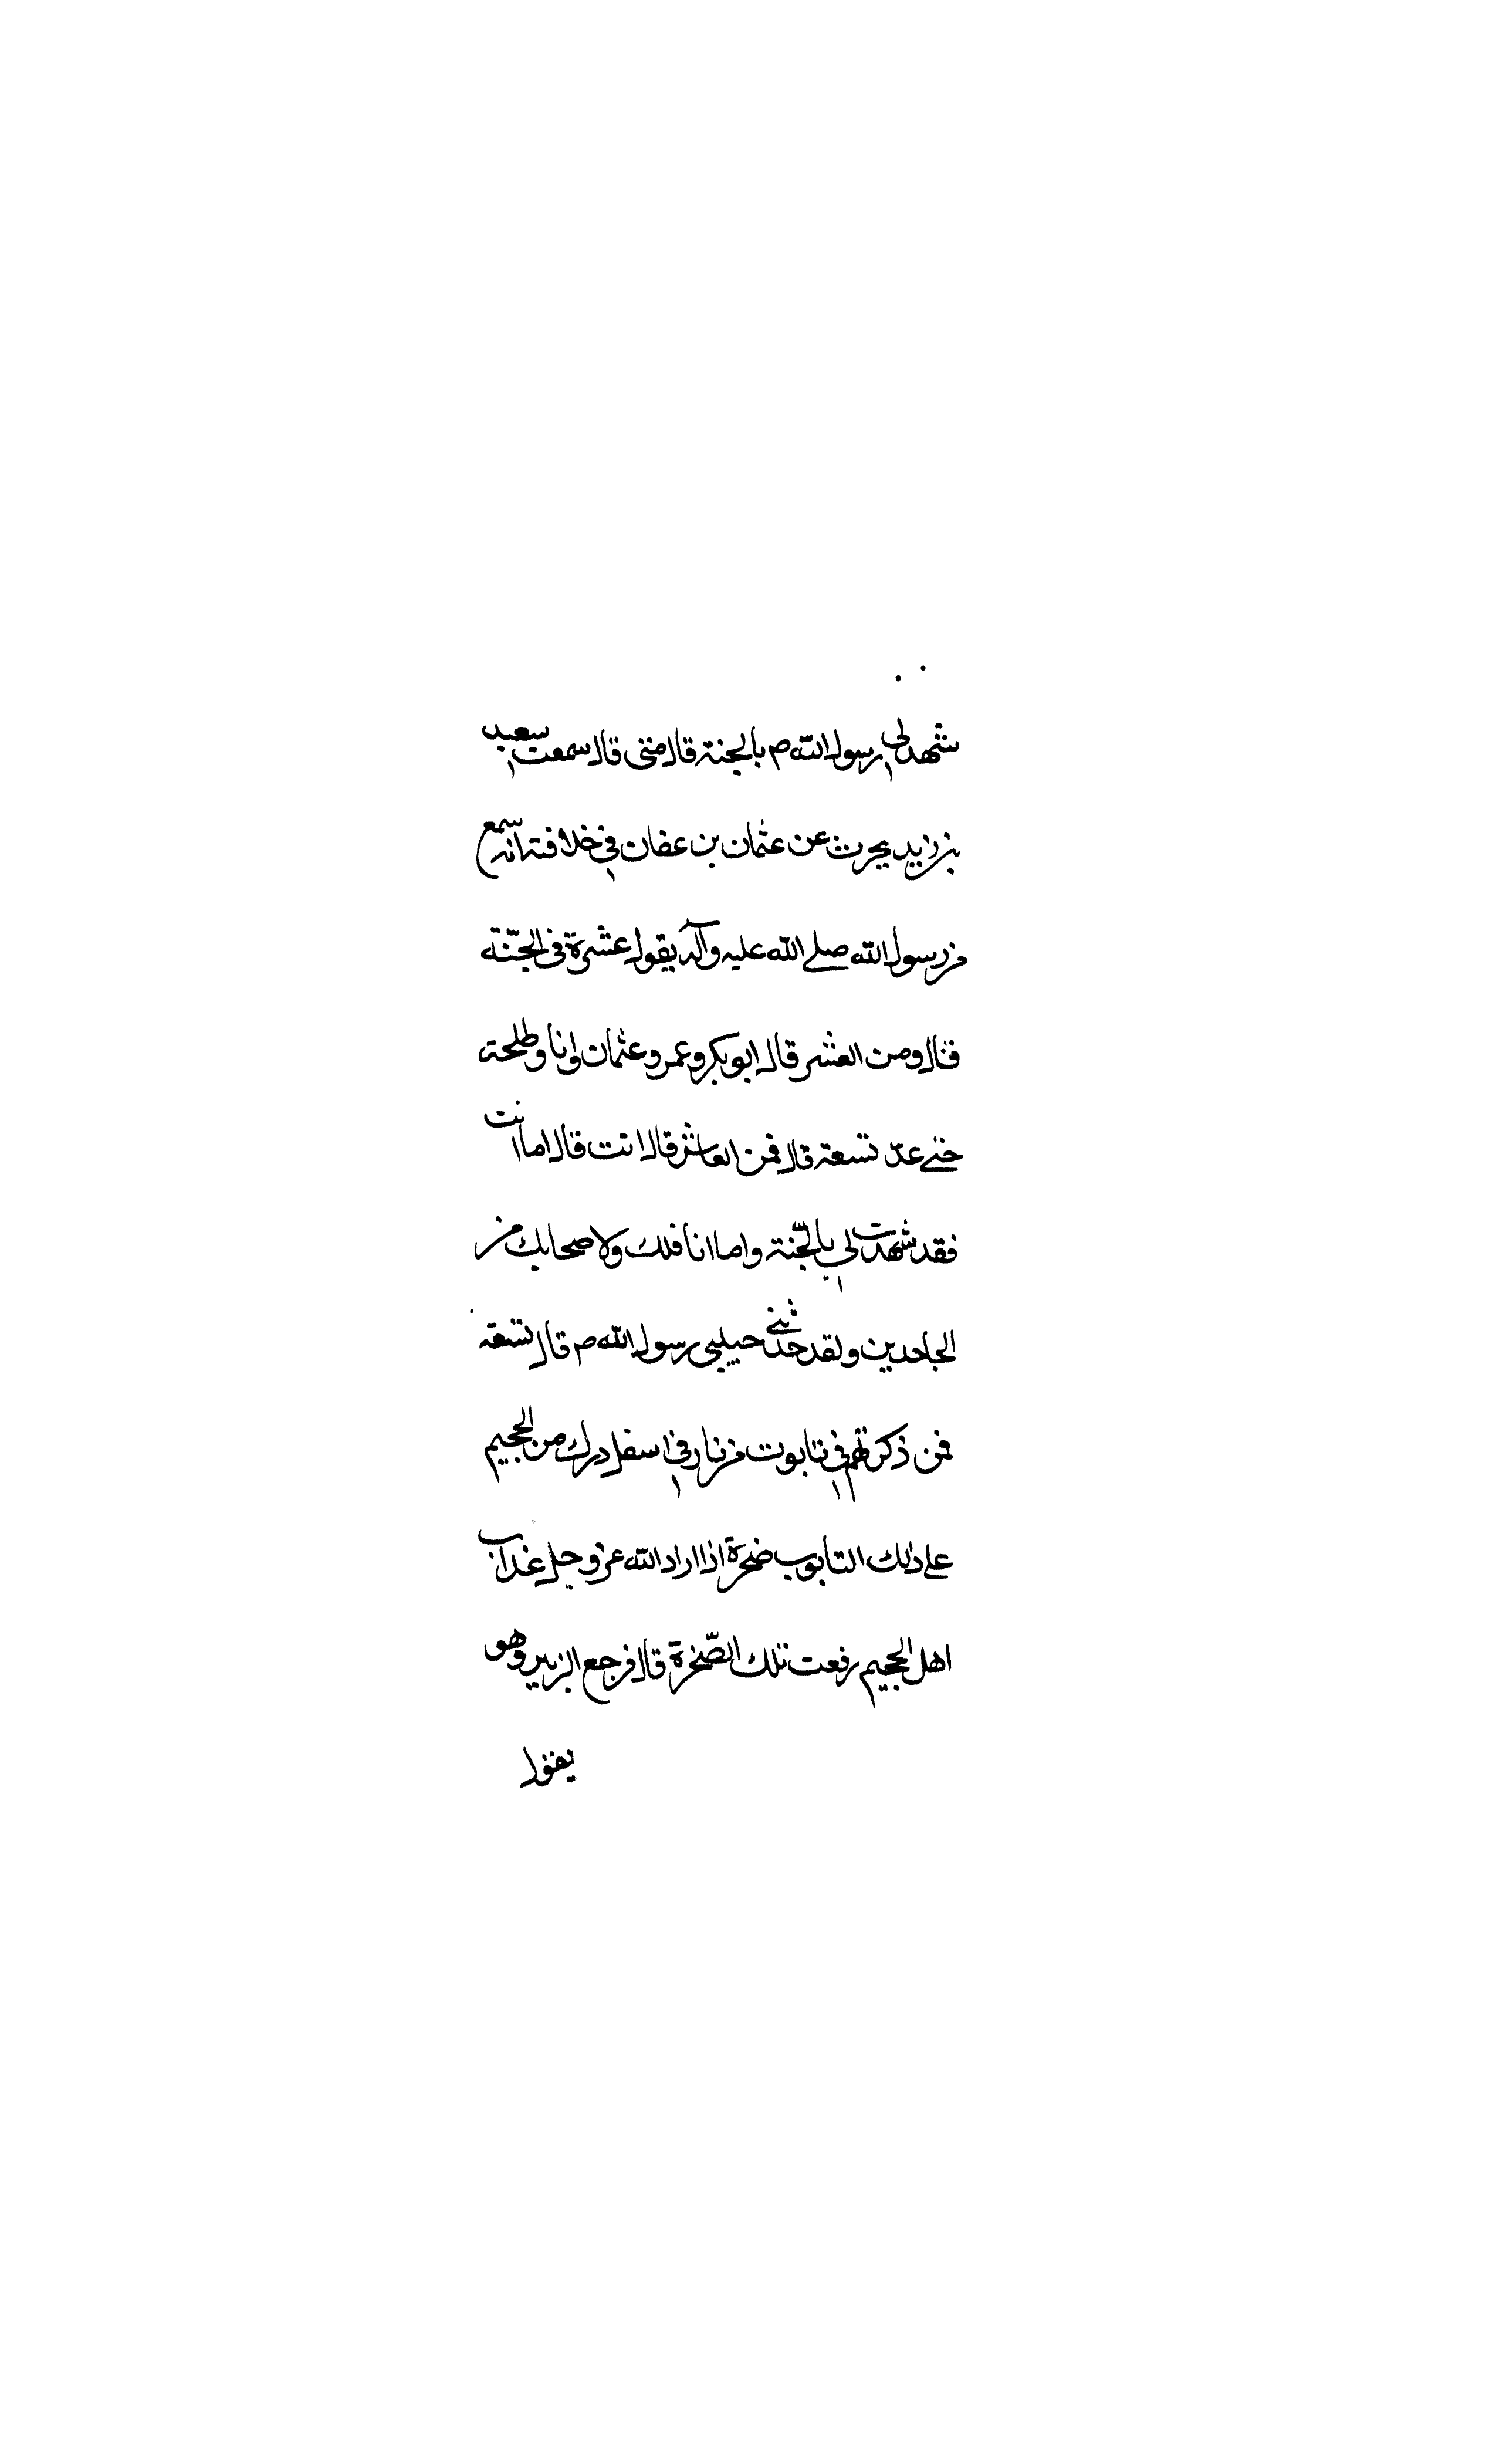 شهد لي رسول الله ص بالجنة قال متى قال سمعت سعيد
بن زيد يحرث عن عثمان بن عفان في خلافته انه سمع
من رسول الله صلى الله عليه وآله يقول عشرة في الجنّة
قال ومن العشر قال ابو بكر وعمر وعثمان وانا وطلحة
حتى عدّ تسعة قال فمن العاشر قال انت قال اما انت
فقد شهدت لي بالجّنة واما انا فلك ولاصحابك من
الجاحدين ولقد حدثني حبيبي رسول الله ص قال تسعة
ممن ذكرتهم في تابوت من نار في اسفل درك من الجحيم
على ذلك التابوب صخرة اذا اراد الله عز وجل عذاب
اهل الجحيم رفعت تلك الصّخرة قال فرجع الزبير وهو
يقول